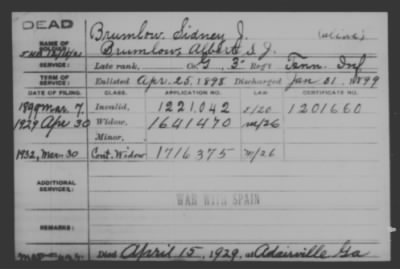 DEAD
NAME OF SOLDIER: Brumlow, Sidney J. (alias)
Brumlow, Albert S. J.
Late rank, Co. G, 3" Reg't Tenn. Inf
TERM OF SERVICE: Enlisted Apr. 25, 1898 Discharged Jan 31, 1899
DATE OF FILING. CLASS. APPLICATION NO. LAW CERTIFICATE NO.
1899 Mar. 7. Invalid, 1221,042 1201660
1929 Apr 30 Widow, 1641470 m/26
Minor,
1932, Mar. 30 Cont. Widow 1716375 m/26
ADDITIONAL SERVICES:
WAR WITH SPAIN
REMARKS:
Died April 15, 1929, at Adairville Ga